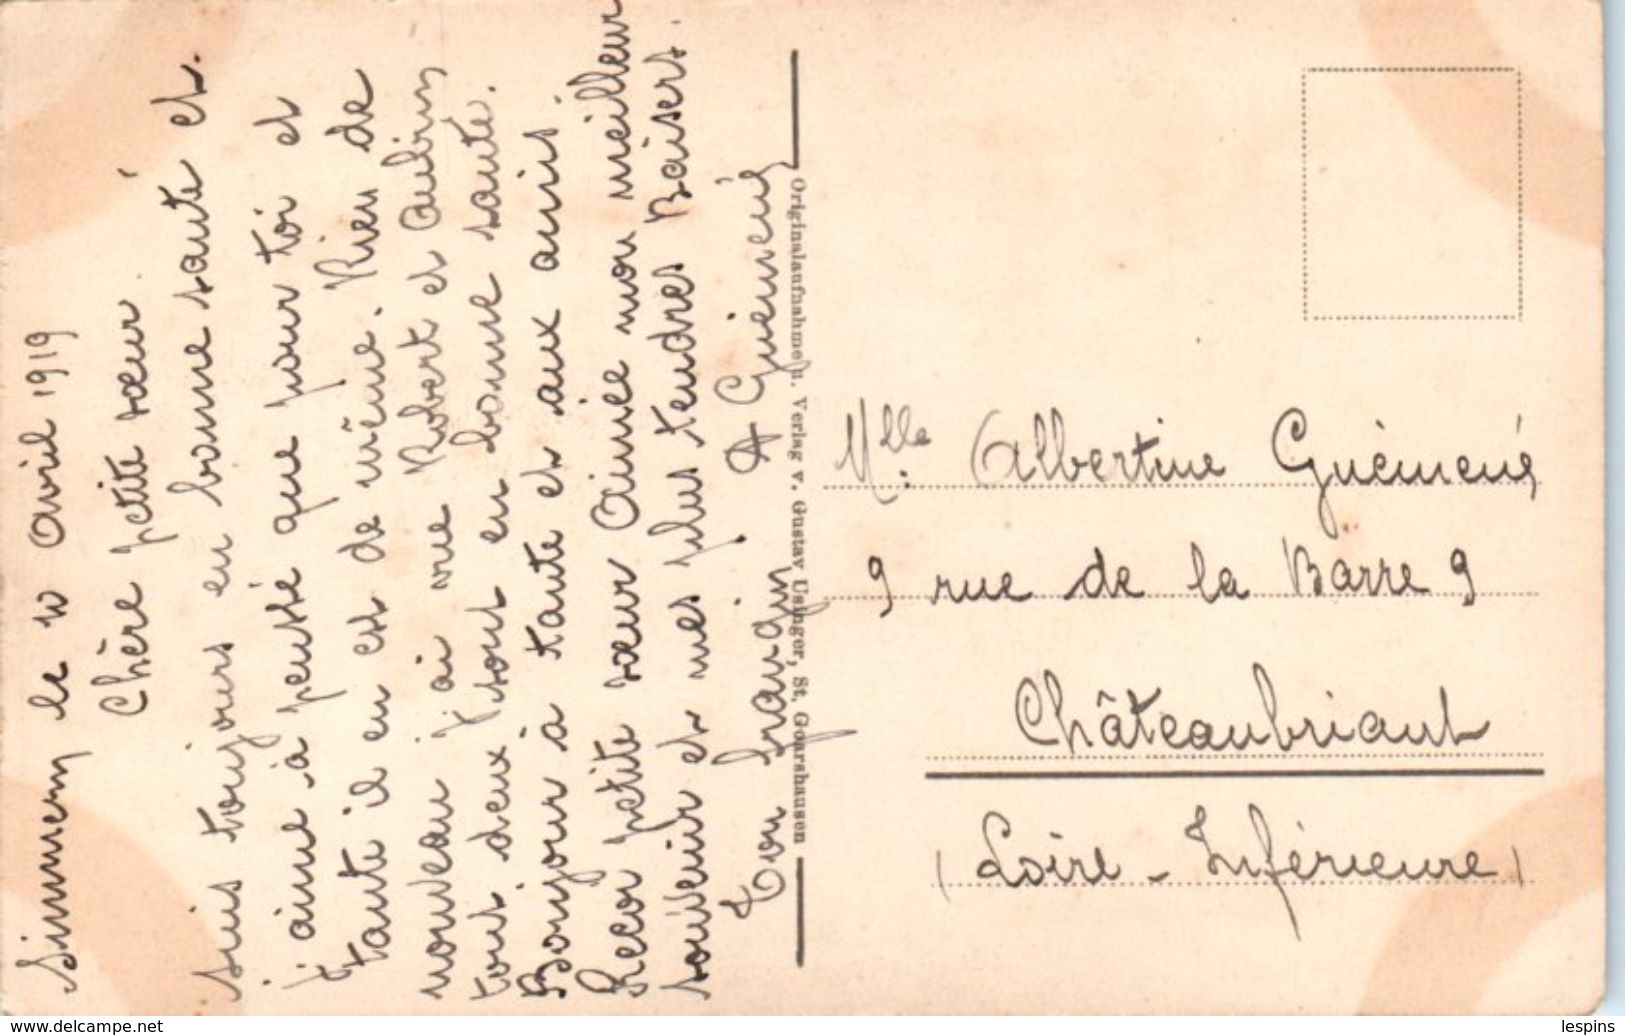 Simmern le 10 Avril 1919
Chère petite sœur
suis toujours en bonne santé et.
j'aime à pensé que pour toi et
tante il en est de même. Rien de
nouveau j'ai vue Robert et Aubin
tout deux sont en bonne santé.
Bonjour à tante et aux amis
Recoi petite sœur Aimée mon meilleur
souvenir et mes plus tendres Baisers.
Ton frangin. A Guémené
Originalaufnahme u. Verlag v. Gustav Usinger, St. Goarshausen
Mlle. Albertine Guémené
9 rue de la Barre 9
Châteaubriant
(Loire-Inférieure)
www.delcampe.net
lespins